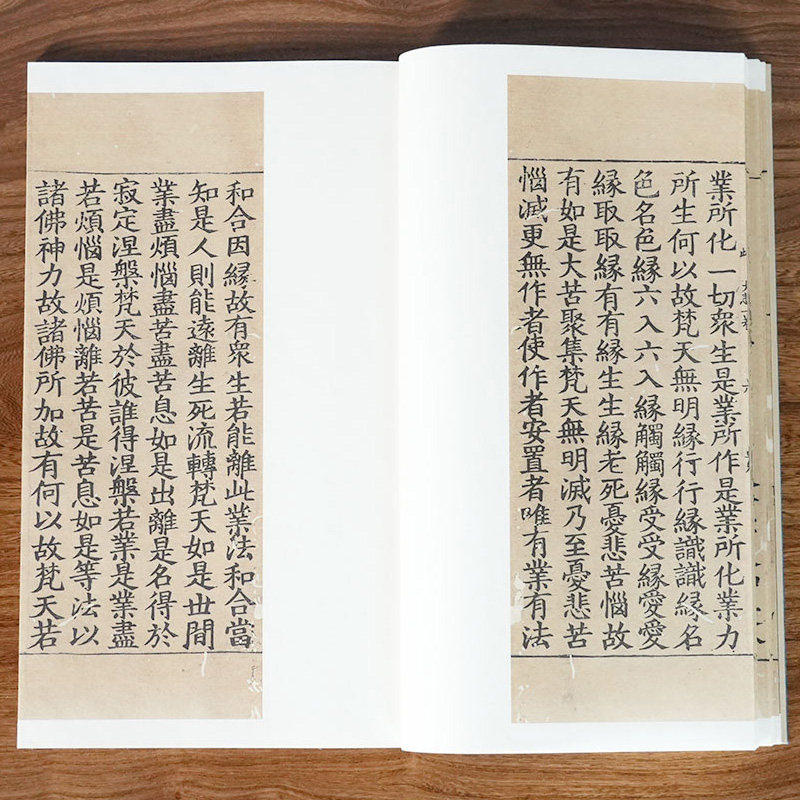 業所化一切衆生是業所作是業所化業力
所生何以故梵天無明緣行行緣識識緣名
色名色緣六入六入緣觸觸緣受受緣愛愛
緣取取緣有有緣生生緣老死憂悲苦惱故
有如是大苦聚集梵天無明滅乃至憂悲苦
惱滅更無作者使作者安置者唯有業有法
和合因緣故有衆生若能離此業法和合當
知是人則能遠離生死流轉梵天如是世間
業盡煩惱盡苦盡苦息如是出離是名得於
寂定涅槃梵天於彼誰得涅槃若業是業盡
若煩惱是煩惱離若苦是苦息如是等法以
諸佛神力故諸佛所加故有何以故梵天若